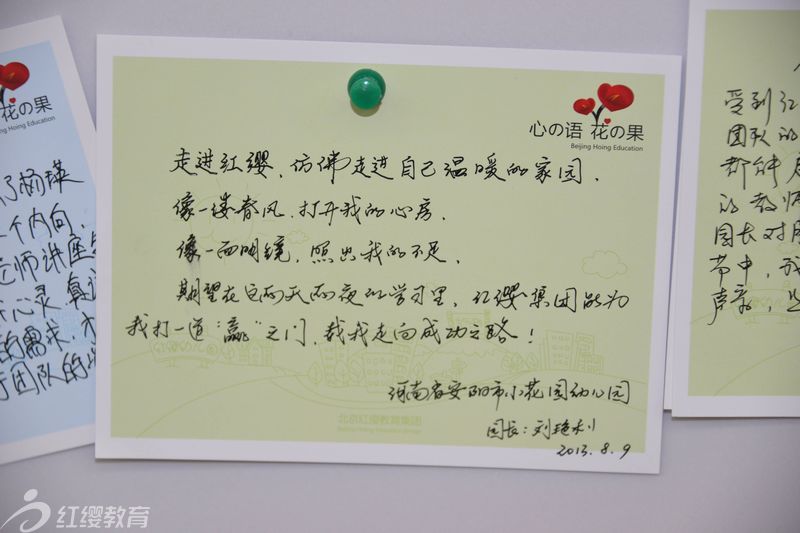 心の语 花の果
Beijing Hoing Education
走进红缨，仿佛走进自己温暖的家园，
像一缕春风，打开我的心房，
像一面明镜，照出我的不足，
期望在这两天两夜的学习里，红缨集团能为
我打一道“赢”之门，载我走向成功之路！
河南省安阳市小花园幼儿园
园长：刘艳利
2013.8.9
北京红缨教育集团
花の果
Beijing Hoing Education
了杨瑛
个内向，
师讲座
心灵，真
的需求，
团队的
受到红
团队的
都能
的教师
园长对
带中，我
声亲，
红缨教育